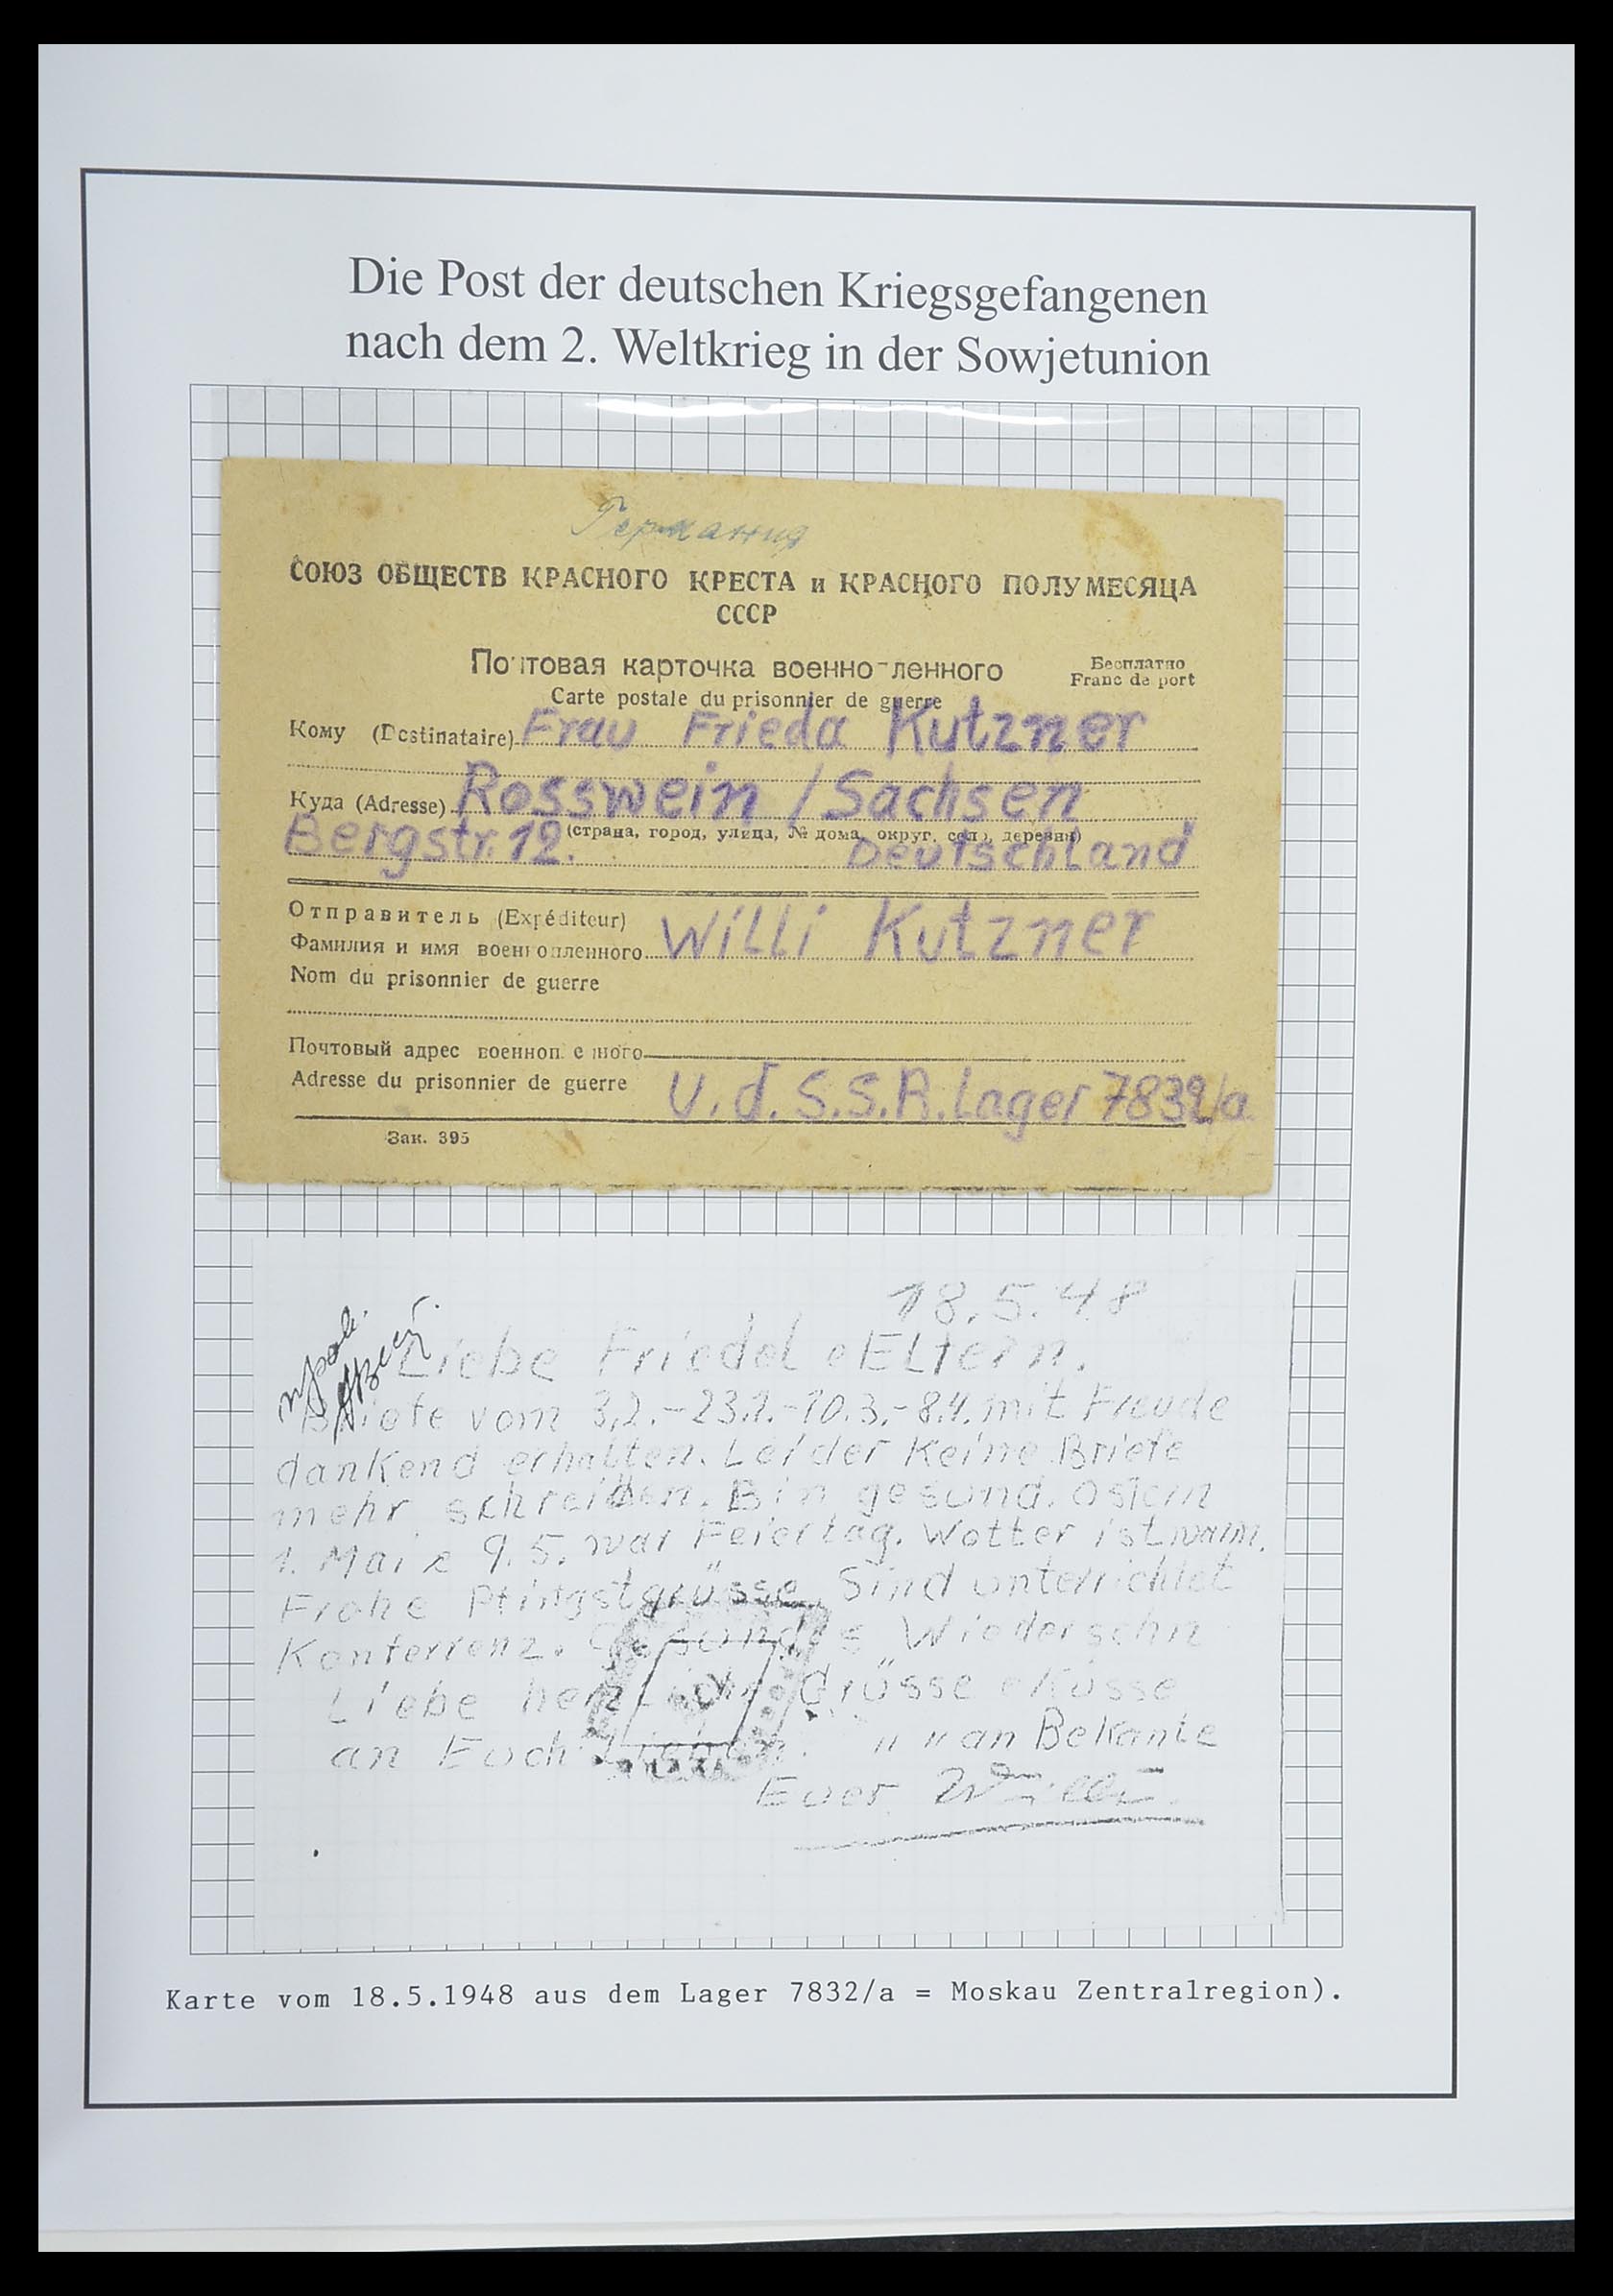 Die Post der deutschen Kriegsgefangenen
nach dem 2. Weltkrieg in der Sowjetunion
Германия
СОЮЗ ОБЩЕСТВ КРАСНОГО КРЕСТА и КРАСНОГО ПОЛУМЕСЯЦА
СССР
Почтовая карточка военно-ленного
Бесплатно
Franc de port
Carte postale du prisonnier de guerre
Кому (Destinataire) Frau Frieda Kutzner
Куда (Adresse) Rosswein / Sachsen
(страна, город, улица, № дома, округ, село, деревня)
Bergstr. 12. Deutschland
Отправитель (Expéditeur)
Фамилия и имя военнопленного Willi Kutzner
Nom du prisonnier de guerre
Почтовый адрес военноп е нного
Adresse du prisonnier de guerre U.d.S.S.R. Lager 7832/a
Зак. 395
18.5.48
Liebe Friedel e Eltern.
Briefe vom 3.2.-23.2.-10.3.-8.4. mit Freude
dankend erhalten. Leider Keine Briefe
mehr schreiben. Bin gesund. Ostern
1. Mai e 9.5. war Feiertag. Wetter ist warm.
Frohe Pfingstgrüsse. Sind unterrichtet
Konferrenz. Gesundes Wiedersehn
Liebe herzliche Grüsse e Küsse
an Euch Lieben. " " an Bekante
Euer Willi
Karte vom 18.5.1948 aus dem Lager 7832/a = Moskau Zentralregion).